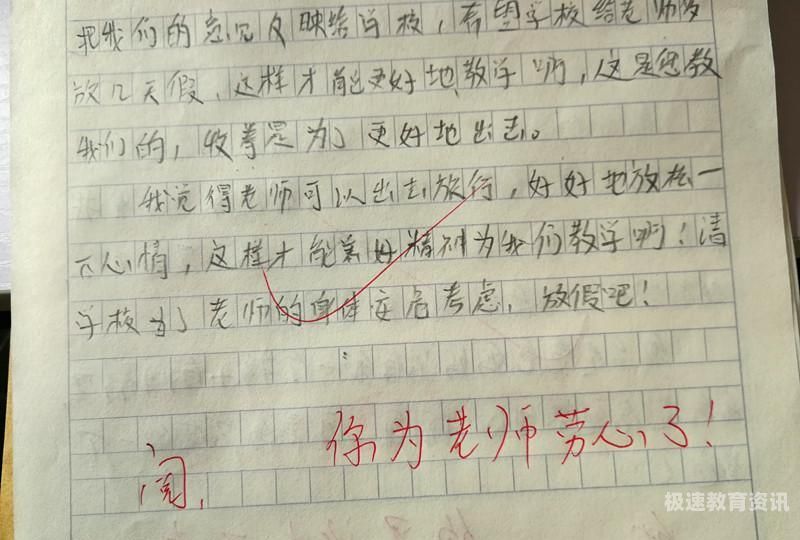 把我们的意见反映给学校，希望学校给老师多
放几天假，这样才能更好地教学啊，这是您教
我们的，收拳是为了更好地出击。
我觉得老师可以出去旅行，好好地放松一
下心情，这样才能养好精神为我们教学啊！请
学校为了老师的身体安危考虑，放假吧！
你为老师劳心了！
阅，
极速教育资讯